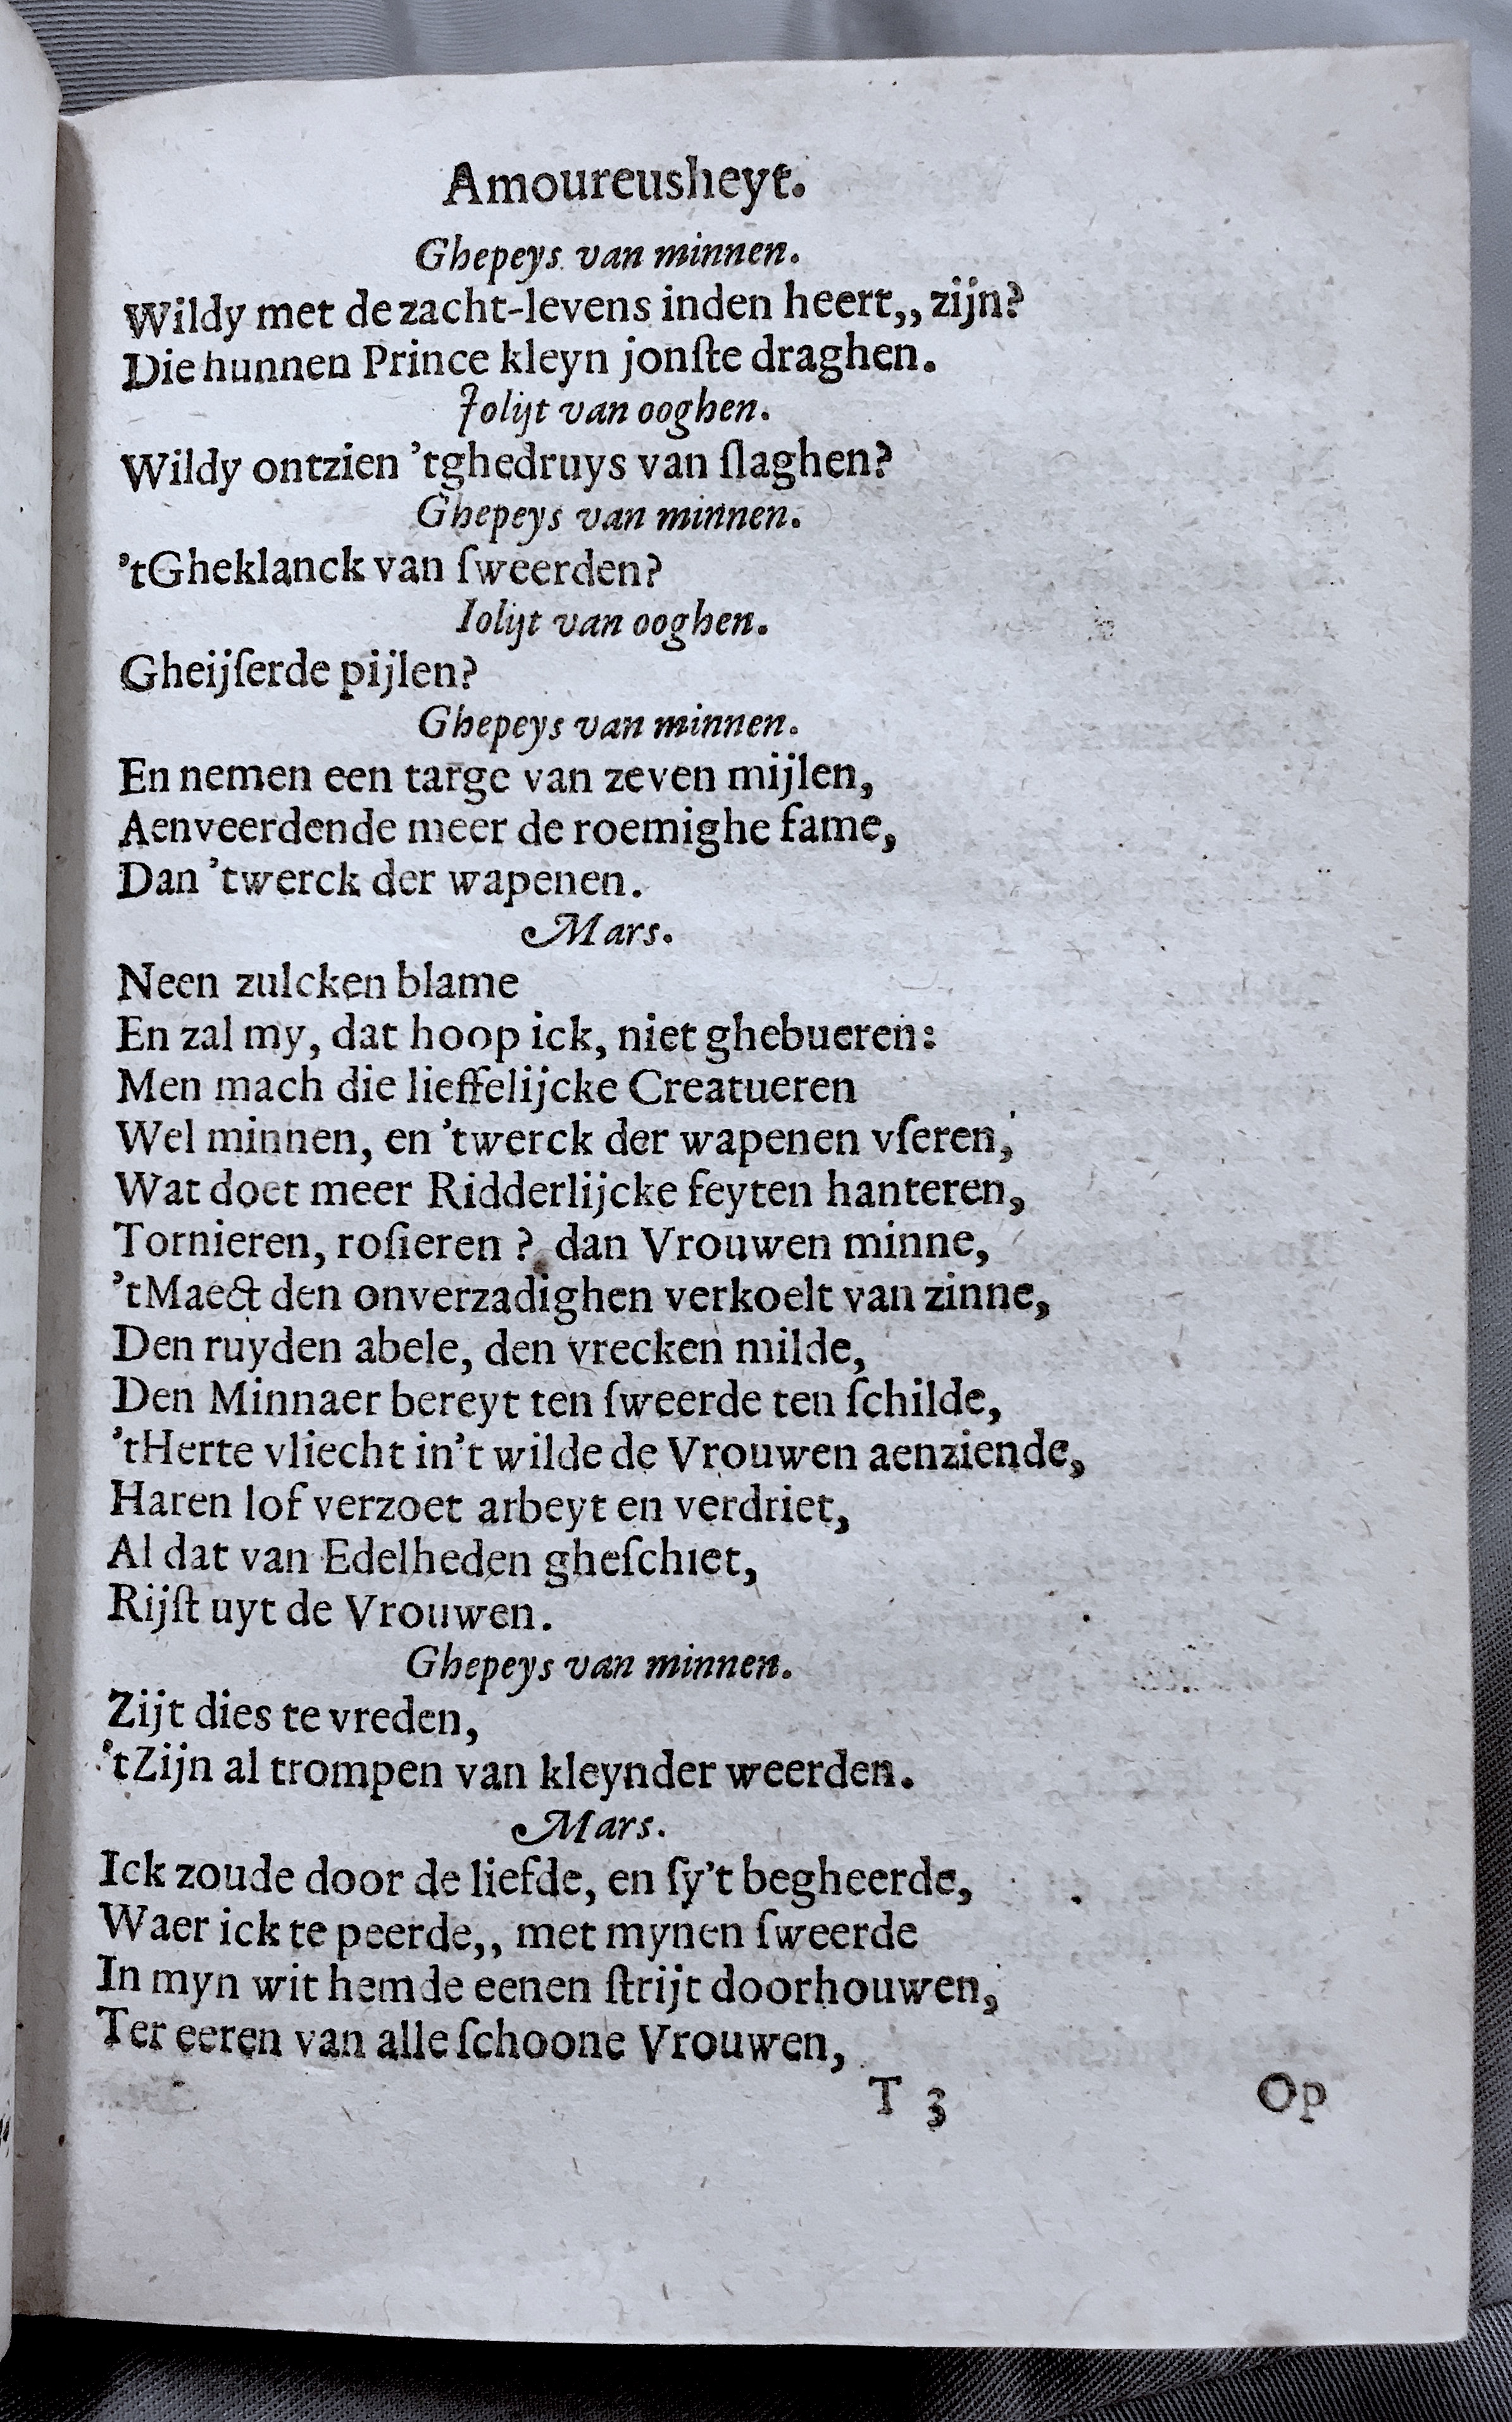 Amoureusheyt.
Ghepeys van minnen.
Wildy met de zacht-levens inden heert,, zijn?
Die hunnen Prince kleyn jonſte draghen.
Jolijt van ooghen.
Wildy ontzien 'tghedruys van ſlaghen?
Ghepeys van minnen.
'tGheklanck van ſweerden?
Iolijt van ooghen.
Gheijſerde pijlen?
Ghepeys van minnen.
En nemen een targe van zeven mijlen,
Aenveerdende meer de roemighe fame,
Dan 'twerck der wapenen.
Mars.
Neen zulcken blame
En zal my, dat hoop ick, niet ghebueren:
Men mach die lieffelijcke Creatueren
Wel minnen, en 'twerck der wapenen vſeren,
Wat doet meer Ridderlijcke feyten hanteren,
Tornieren, roſieren ? dan Vrouwen minne,
'tMaect den onverzadighen verkoelt van zinne,
Den ruyden abele, den vrecken milde,
Den Minnaer bereyt ten ſweerde ten ſchilde,
'tHerte vliecht in't wilde de Vrouwen aenziende,
Haren lof verzoet arbeyt en verdriet,
Al dat van Edelheden gheſchiet,
Rijſt uyt de Vrouwen.
Ghepeys van minnen.
Zijt dies te vreden,
'tZijn al trompen van kleynder weerden.
Mars.
Ick zoude door de liefde, en ſy't begheerde,
Waer ick te peerde,, met mynen ſweerde
In myn wit hemde eenen ſtrijt doorhouwen,
Ter eeren van alle ſchoone Vrouwen,
T 3 Op